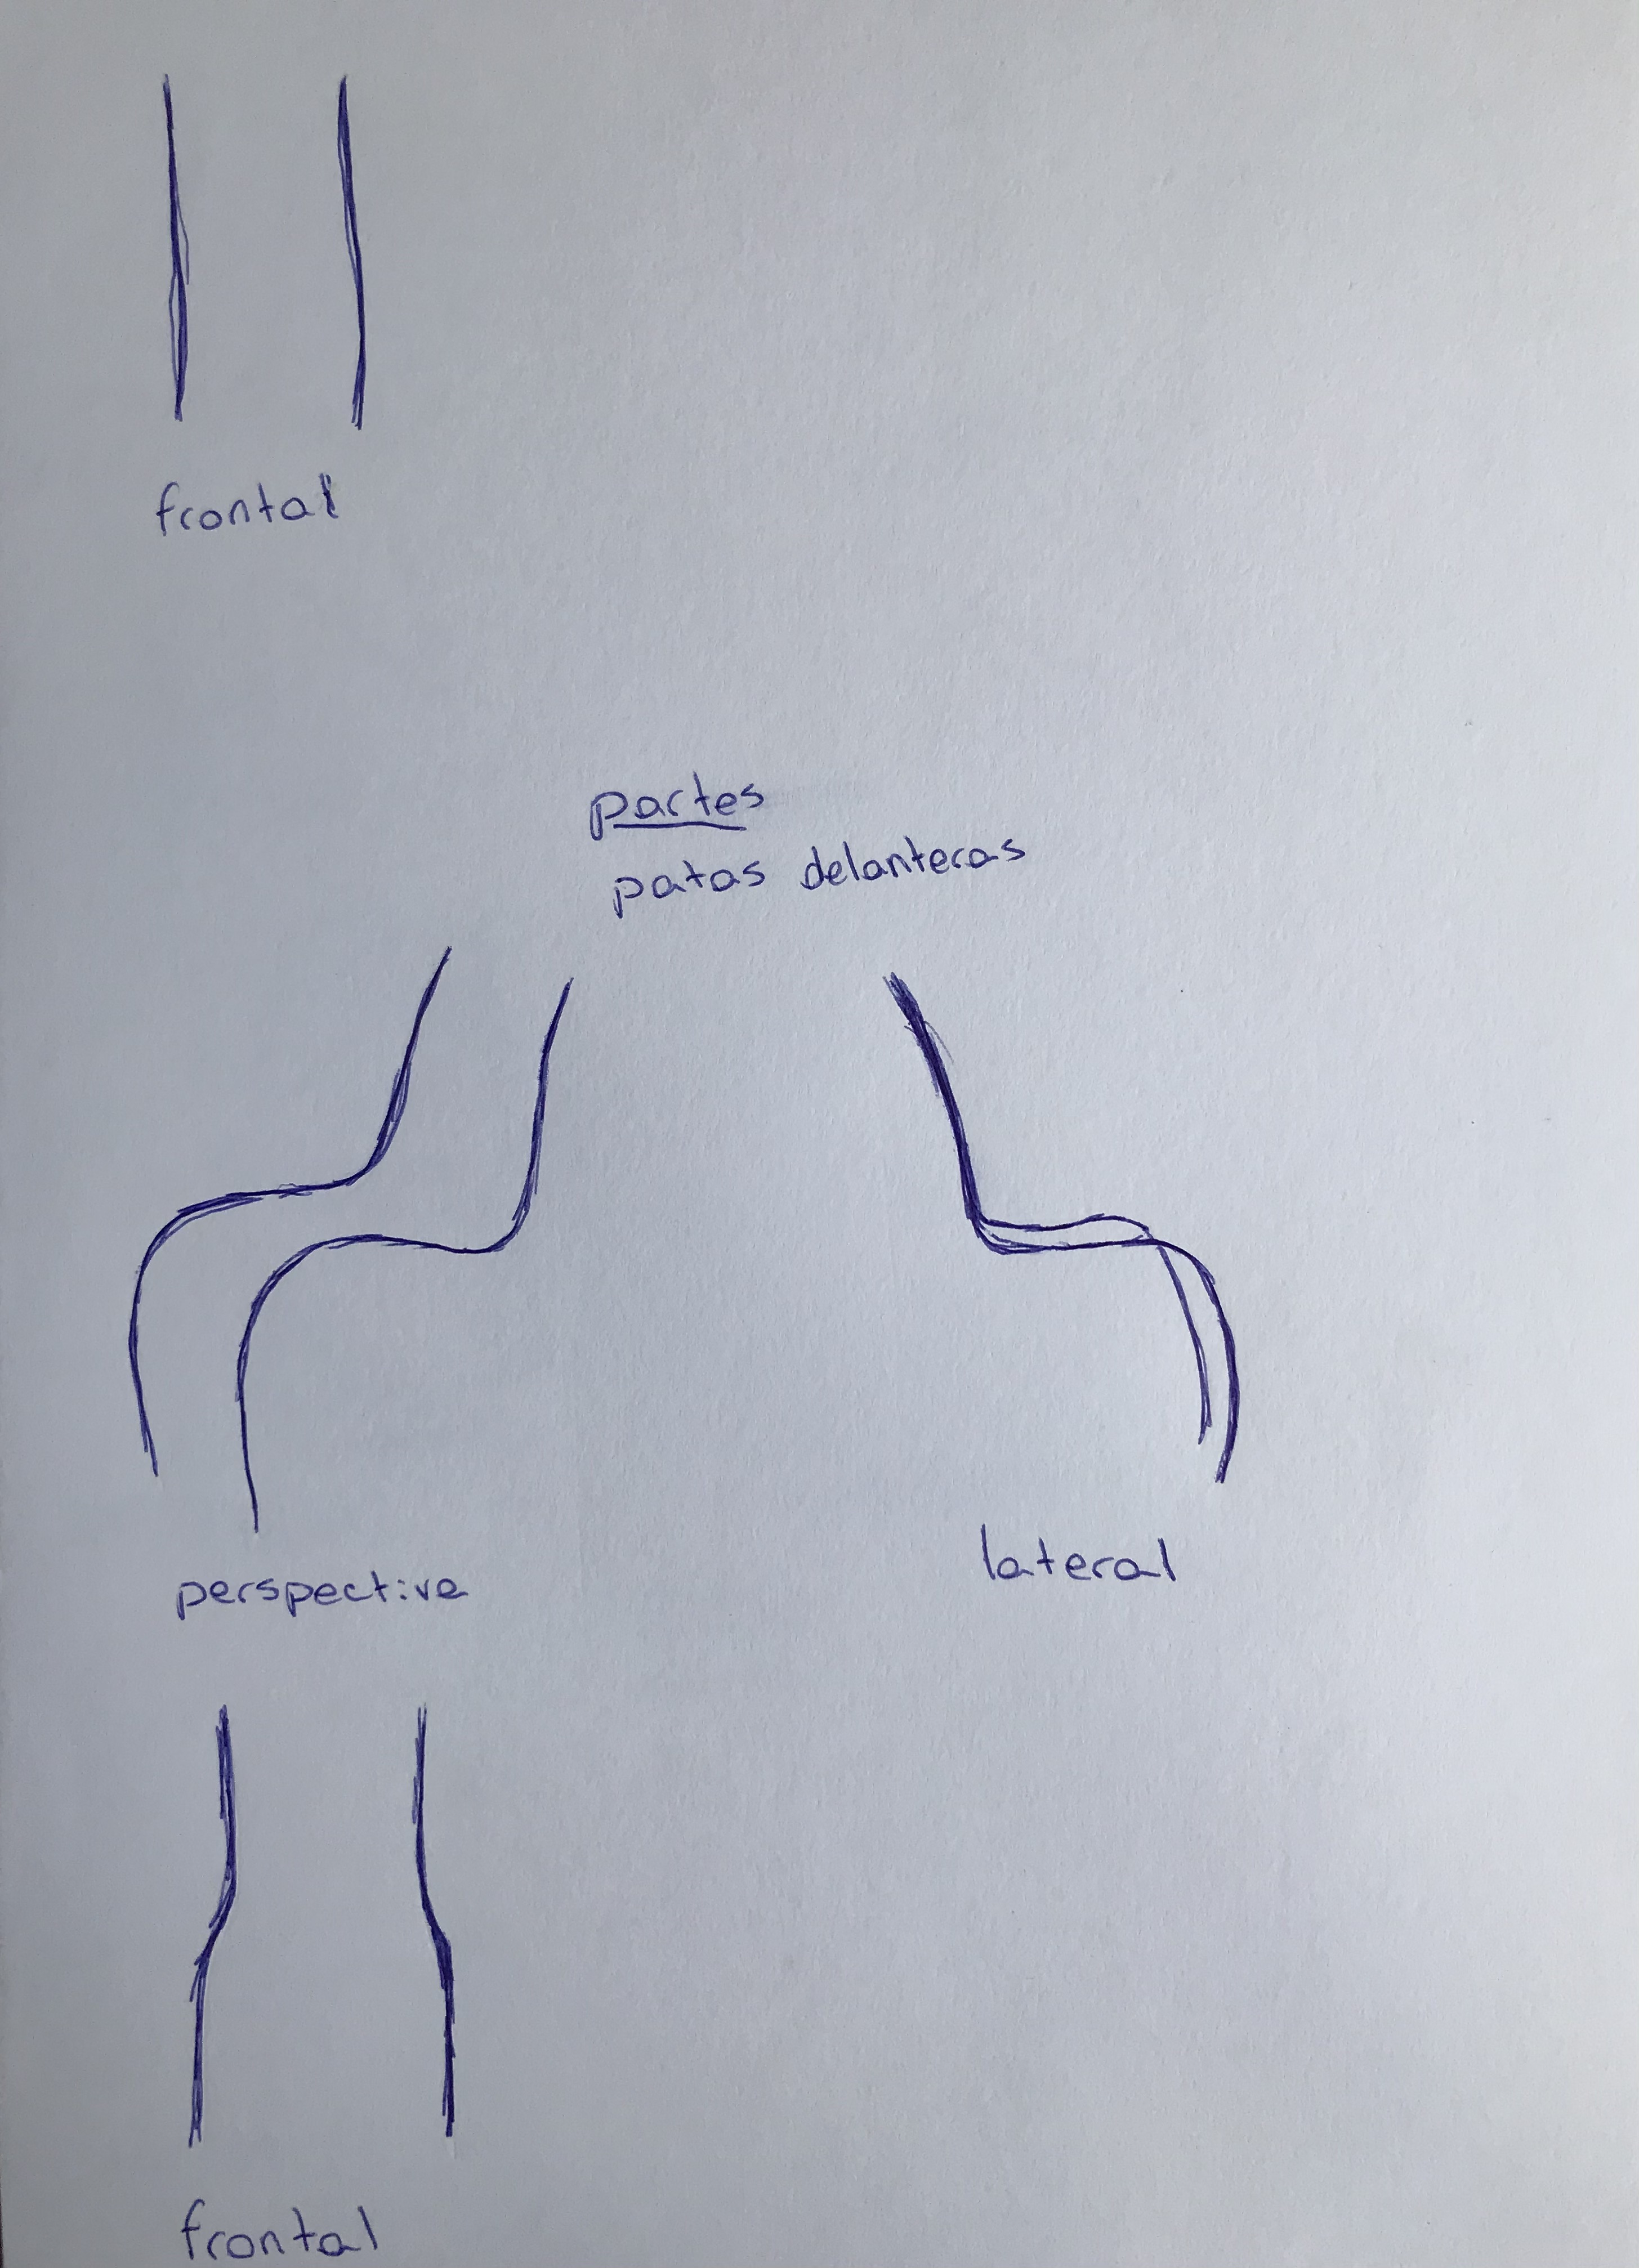 frontal
partes
patas delanteras
perspectiva
lateral
frontal